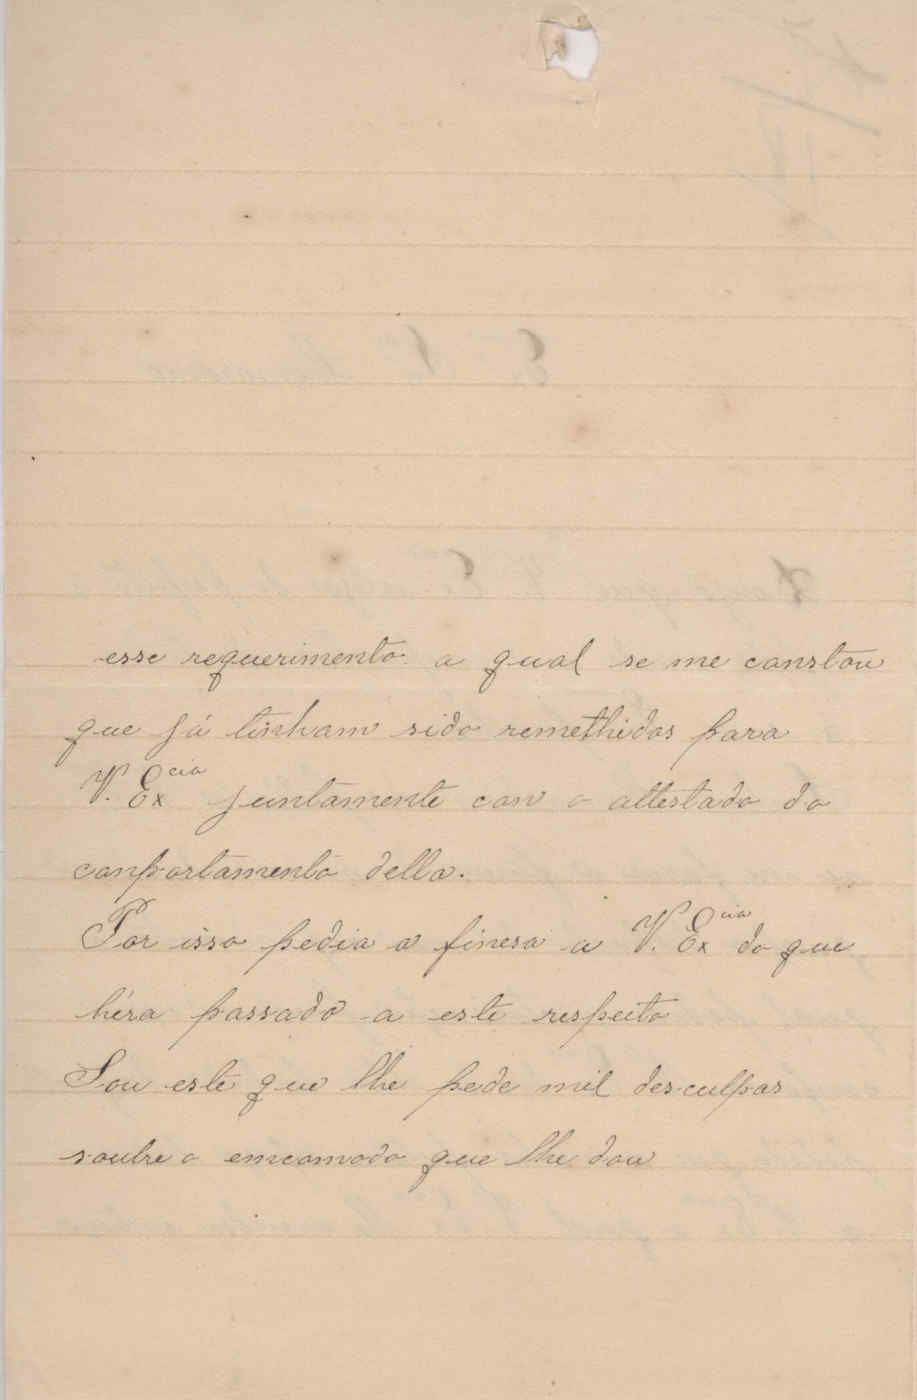 esse requerimento a qual se me constou
que já tinham sido remethidos para
V. Excia juntamente con o attestado do
conportamento della.
Por isso pedia a finesa a V. Excia do que
héra passado a este respeito
Sou este que lhe pede mil desculpas
soubre o emcomodo que lhe dou